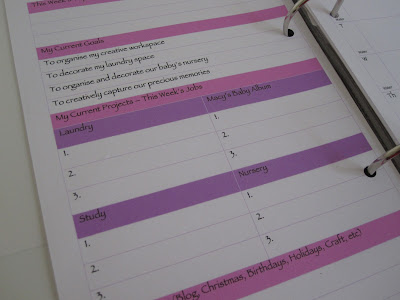 This Week's
My Current Goals
To organise my creative workspace
To decorate my laundry space
To organise and decorate our baby's nursery
To creatively capture our precious memories
My Current Projects – This Week's Jobs
Laundry Macy's Baby Album
1. 1.
2. 2.
3. 3.
Study Nursery
1. 1.
2. 2.
3. 3.
(Blog, Christmas, Birthdays, Holidays, Craft, etc)